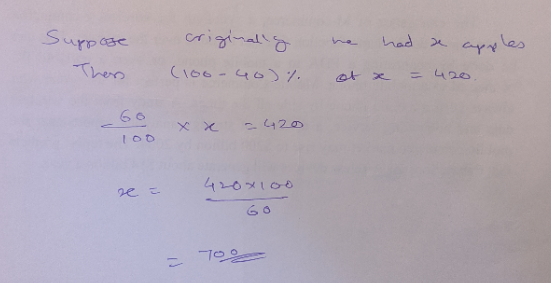 Suppose originally he had x apples
Then (100-40)% of x = 420
60/100 × x = 420
x = 420×100/60
= 700